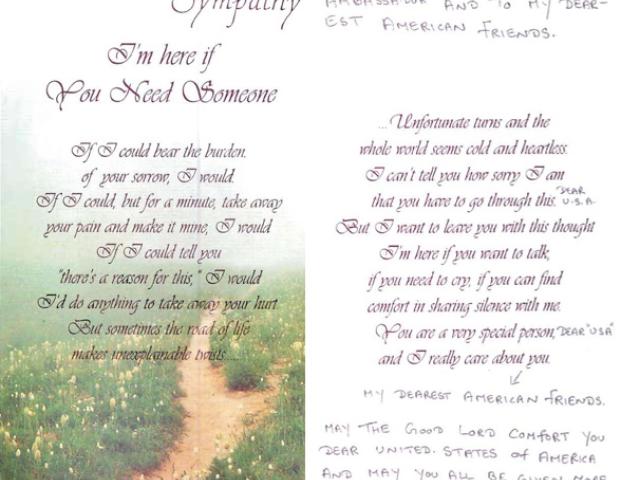 Sympathy
I'm here if
You Need Someone
If I could bear the burden.
of your sorrow, I would.
If I could, but for a minute, take away
your pain and make it mine, I would
If I could tell you
"there's a reason for this," I would
I'd do anything to take away your hurt
But sometimes the road of life
makes unexplainable twists....
AMBASSADOR AND TO MY DEAR-
EST AMERICAN FRIENDS.
...Unfortunate turns and the
whole world seems cold and heartless.
I can't tell you how sorry I am
that you have to go through this. DEAR U.S.A.
But I want to leave you with this thought
I'm here if you want to talk,
if you need to cry, if you can find
comfort in sharing silence with me.
You are a very special person, DEAR "USA"
and I really care about you.
MY DEAREST AMERICAN FRIENDS.
MAY THE GOOD LORD COMFORT YOU
DEAR UNITED. STATES OF AMERICA
AND MAY YOU ALL BE GIVEN MORE